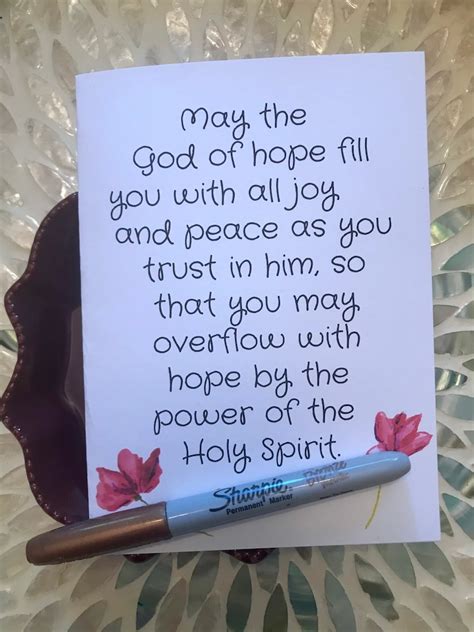 May the
God of hope fill
you with all joy
and peace as you
trust in him, so
that you may
overflow with
hope by the
power of the
Holy Spirit.
Sharpie.
Permanent Marker
Bronze